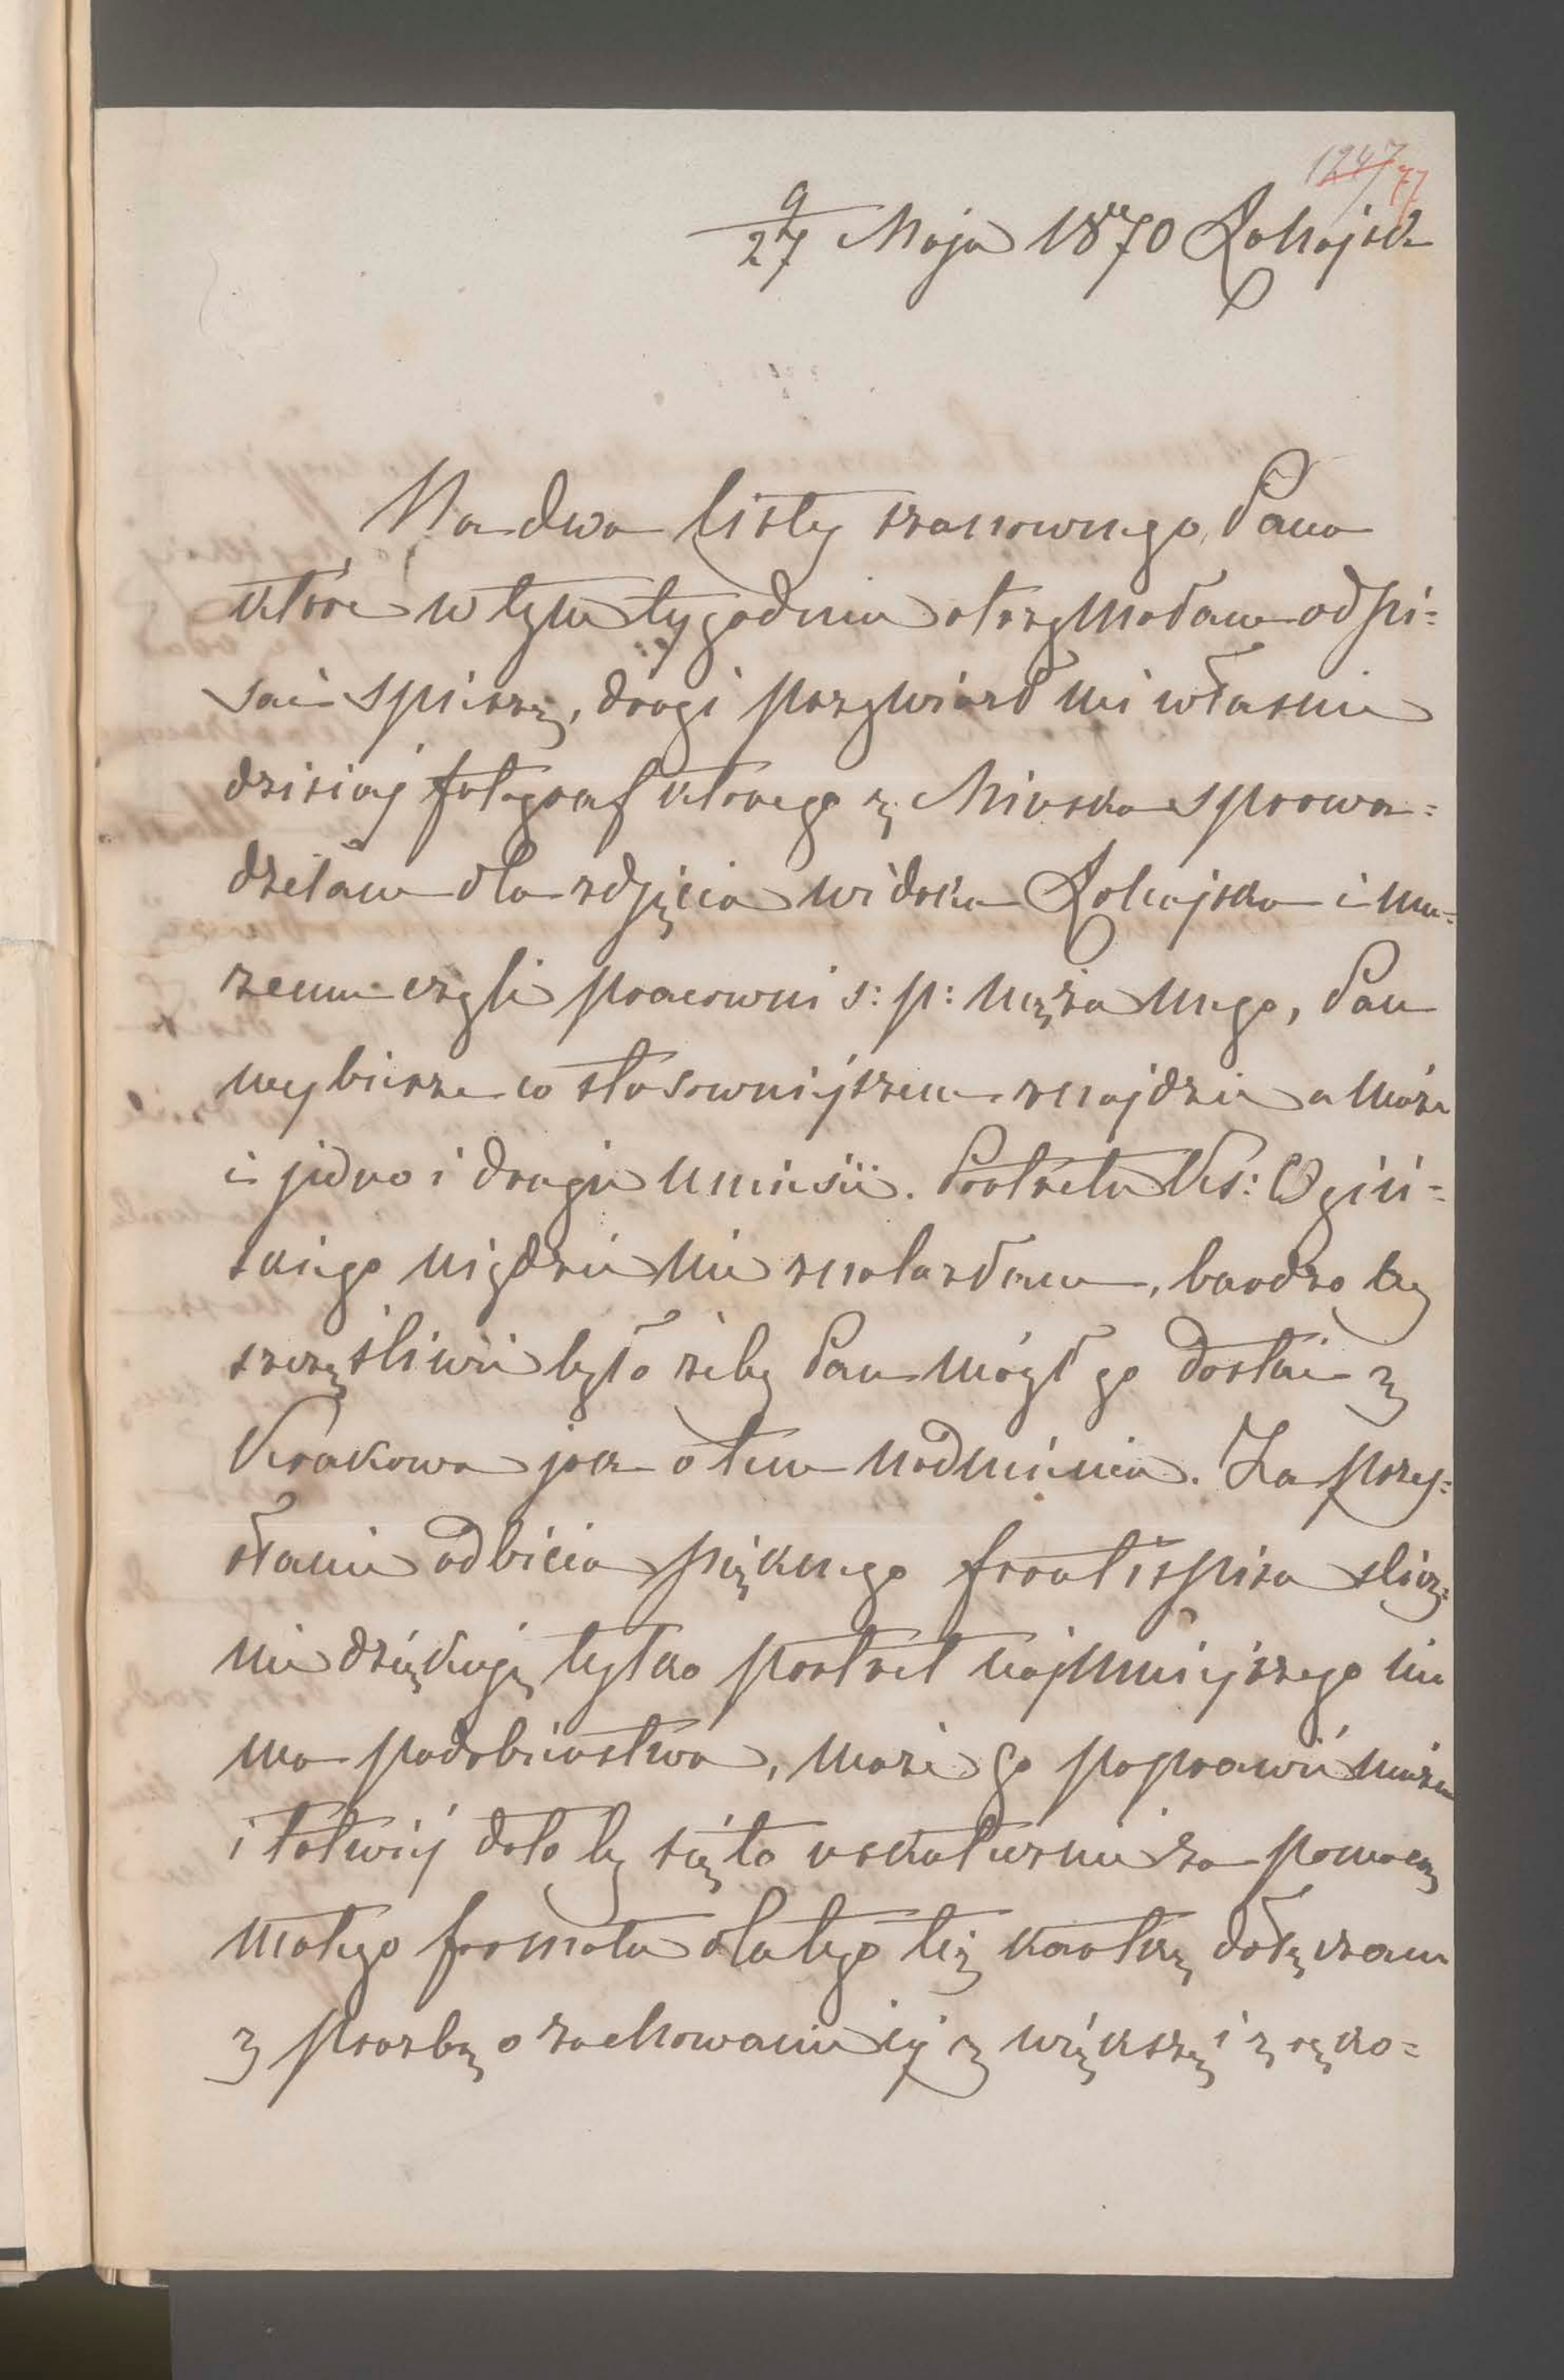 1247 77
9/27 Maja 1870 Łohojsk
Na dwa listy szanownego Pana
które w tym tygodniu otrzymałam odpi=
sać spieszę, drugi przywiózł mi własnie
dzisiaj fotograf ktorego z Minska sprowa=
dziłam dla zdjęcia widoku Łohojska i mu=
zeum czyli pracowni s: p: męża mego, Pan
wybierze co stosowniejszem znajdzie a może
i jedno i drugie umieści. Portretu Ks: Ogiń=
skiego nigdzie nie znalazłam, bardzo by
szczęśliwie było żeby Pan mógł go dostać z
Krakowa jak o tem nadmienia. Za przy=
słanie odbicia pięknego frontispisu slicz=
nie dziękuję tylko portret najmniejszego nie
ma podobieństwa, może go poprawić można
i łatwiej dało by się to uskutecznić za pomocą
małego formatu dlatego też kartkę dołączam
z prozbą o zachowanie jej z większą i z ręko=